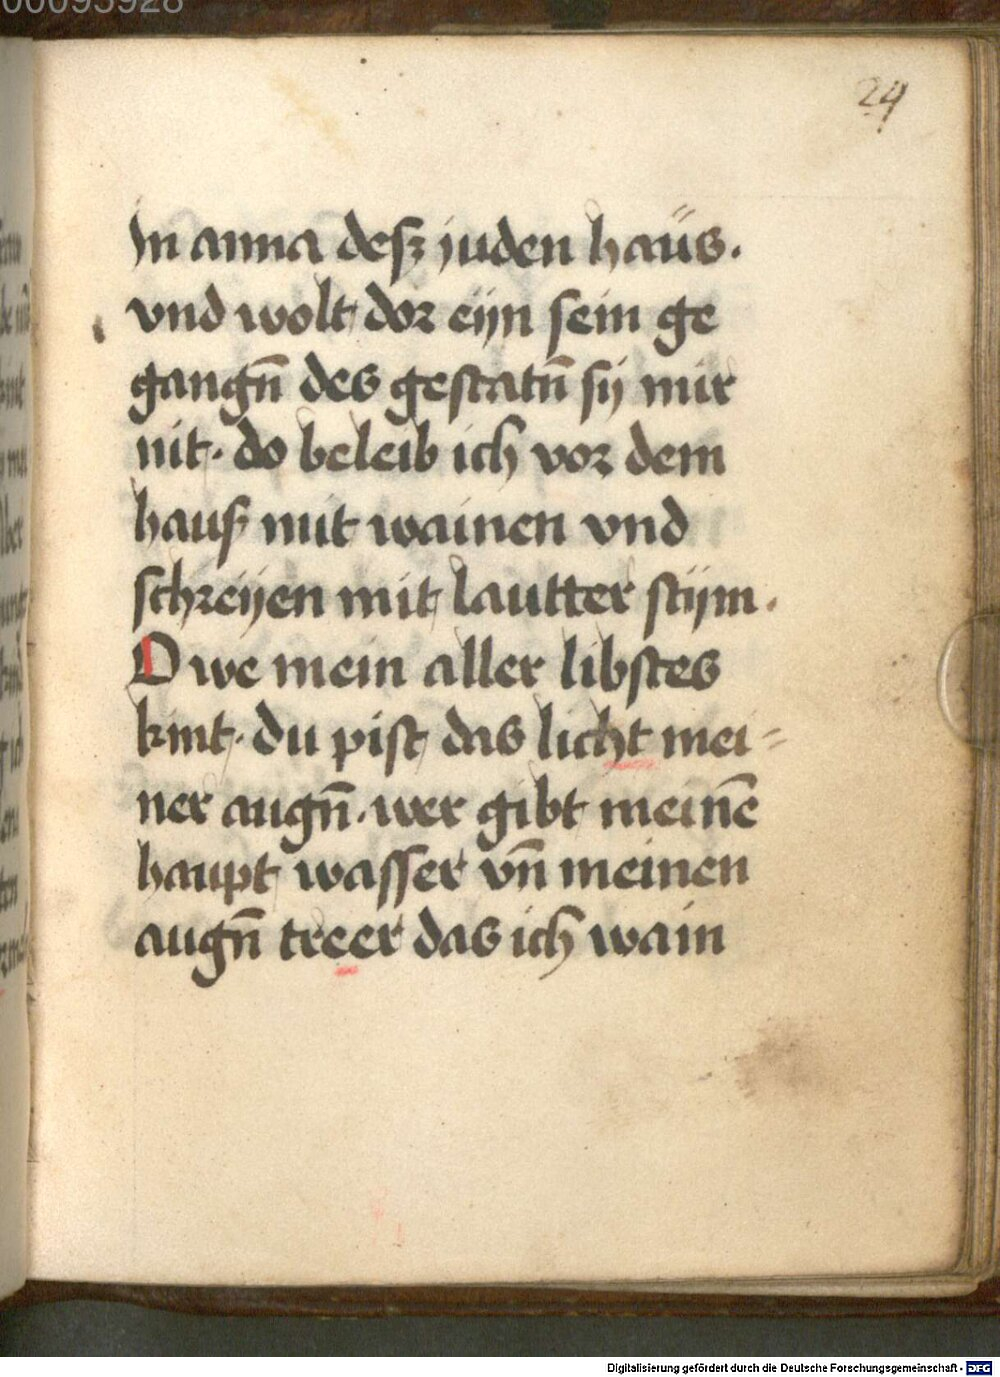 00095928
24
In anna desz juden haüs.
vnd wolt dor eyn sein ge
gangn̄ des gestatn̄ sy mir
nit. do beleib ich vor dem
hausz mit wainen vnd
schreyen mit lautter stym.
O we mein aller libstes
kint. du pist das licht mei=
ner augn̄. wer gibt meinē
haupt wasser vn̄ meinen
augn̄ treer das ich wain
Digitalisierung gefördert durch die Deutsche Forschungsgemeinschaft - DFG